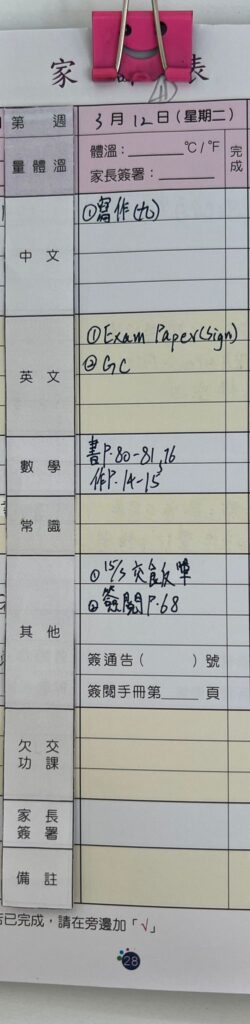 家 表
第 週 3月12日(星期二)
量體溫 體溫:______°C/°F 完成
家長簽署:______
中文 ①寫作(九)
英文 ①Exam Paper(Sign)
②GC
數學 書P.80-81,76
作P.14-15
常識
其他 ①15/3交飯單
②簽閱P.68
簽通告( )號
簽閱手冊第____頁
欠交功課
家長簽署
備註
若已完成,請在旁邊加「√」
28